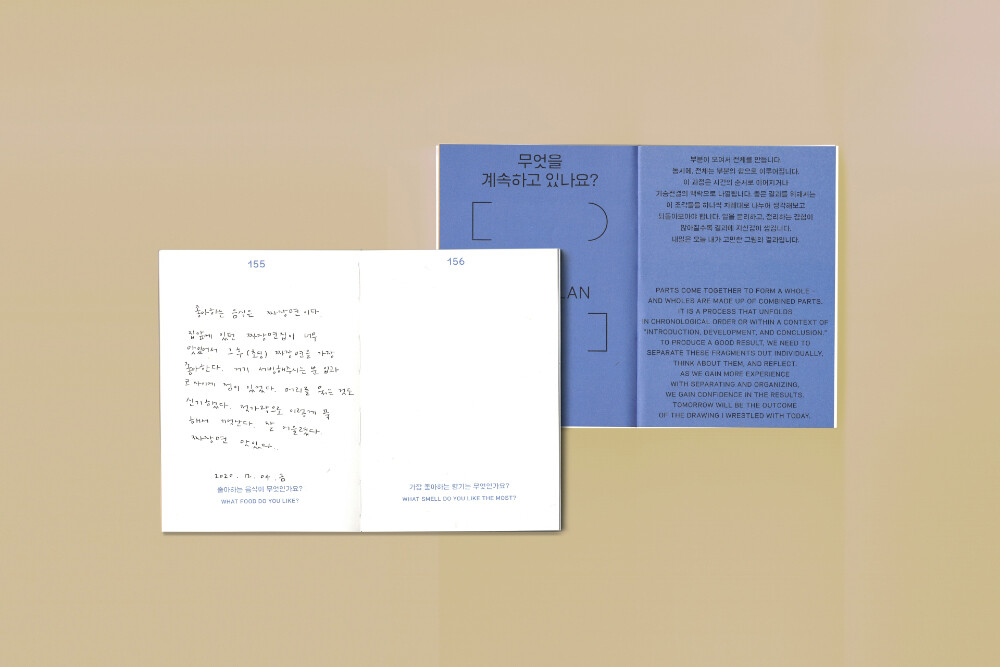 155
좋아하는 음식은 짜장면이다.
집앞에 있던 짜장면집이 너무
맛있어서 그 후 짜장면을 가장
좋아한다. 거기 서빙해주시는 분
코 사이에 점이 있었다. 머리를 묶는 것도
신기했다. 젓가락으로 이렇게
해서 어울렸다.
짜장면 맛있다..
2020. 12. 04.
좋아하는 음식이 무엇인가요?
WHAT FOOD DO YOU LIKE?
156
가장 좋아하는 향기는 무엇인가요?
WHAT SMELL DO YOU LIKE THE MOST?
무엇을
계속하고 있나요?
LAN
부분이 모여서 전체를 만듭니다.
동시에, 전체는 부분의 합으로 이루어집니다.
이 과정은 시간의 순서로 이어지거나
기승전결의 맥락으로 나열됩니다. 좋은 결과를 위해서는
이 조각들을 하나씩 차례대로 나누어 생각해보고
되돌아보아야 합니다. 일을 분리하고, 정리하는 경험이
많아질수록 결과에 자신감이 생깁니다.
내일은 오늘 내가 고민한 그림의 결과입니다.
PARTS COME TOGETHER TO FORM A WHOLE –
AND WHOLES ARE MADE UP OF COMBINED PARTS.
IT IS A PROCESS THAT UNFOLDS
IN CHRONOLOGICAL ORDER OR WITHIN A CONTEXT OF
"INTRODUCTION, DEVELOPMENT, AND CONCLUSION."
TO PRODUCE A GOOD RESULT, WE NEED TO
SEPARATE THESE FRAGMENTS OUT INDIVIDUALLY,
THINK ABOUT THEM, AND REFLECT.
AS WE GAIN MORE EXPERIENCE
WITH SEPARATING AND ORGANIZING,
WE GAIN CONFIDENCE IN THE RESULTS.
TOMORROW WILL BE THE OUTCOME
OF THE DRAWING I WRESTLED WITH TODAY.